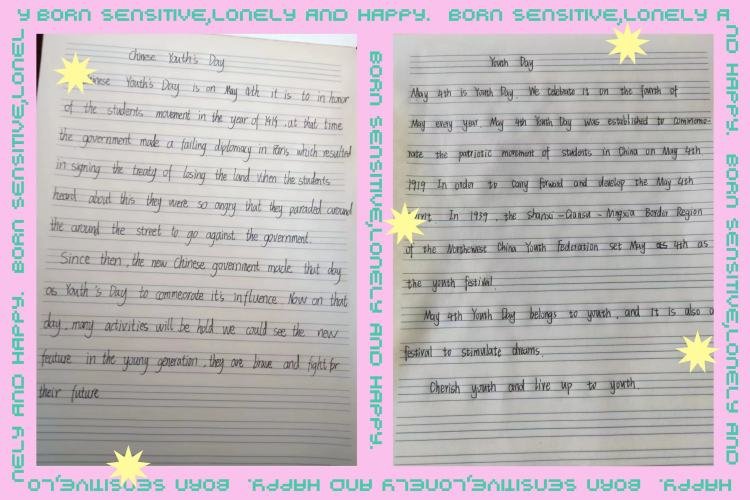 Y BORN SENSITIVE,LONELY AND HAPPY. BORN SENSITIVE,LONELY A
ND HAPPY. BORN SENSITIVE,LONELY AND
HAPPY. BORN SENSITIVE,LONELY AND HAPPY. BORN SENSITIVE,LO
NELY AND HAPPY. BORN SENSITIVE,LONEL
BORN SENSITIVE,LONELY AND HAPPY.
Chinese Youth's Day
Youth's Day is on May 4th it is to in honor
of the students movement in the year of 1919 .at that time
the government made a failing diplomacy in Paris which resulted
in signing the treaty of losing the land When the students
heard about this they were so angry that they paraded around
the around the street to go against the government.
Since then, the new Chinese government made that day
as Youth's Day to commeorate it's influence. Now on that
day, many activities will be hold we could see the new
feature in the young generation , they are brave and fight for
their future
Youth Day
May 4th is Youth Day. We celebrate it on the fourth of
May every year. May 4th Youth Day was established to commemo-
rate the patriotic movement of students in China on May 4th
1919 In order to carry forward and develop the May 4th
In 1939 , the Shanxi - Gansu - Ningxia Border Region
of the Northwest China Youth Federation set May 4th as
the youth festival.
May 4th Youth Day belongs to youth , and it is also a
festival to stimulate dreams.
Cherish youth and live up to youth